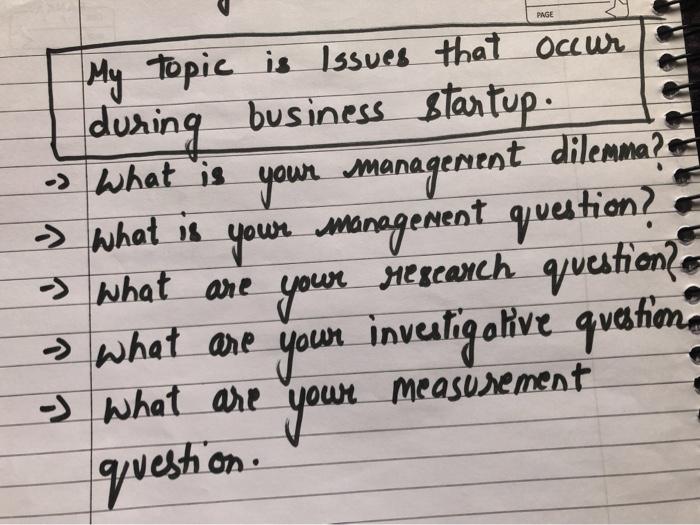 PAGE
My Topic is Issues that occur
during business startup.
-> What is your management dilemma?
-> What is your management question?
-> What are your research question?
-> What are your investigative question
-> What are your measurement
question.